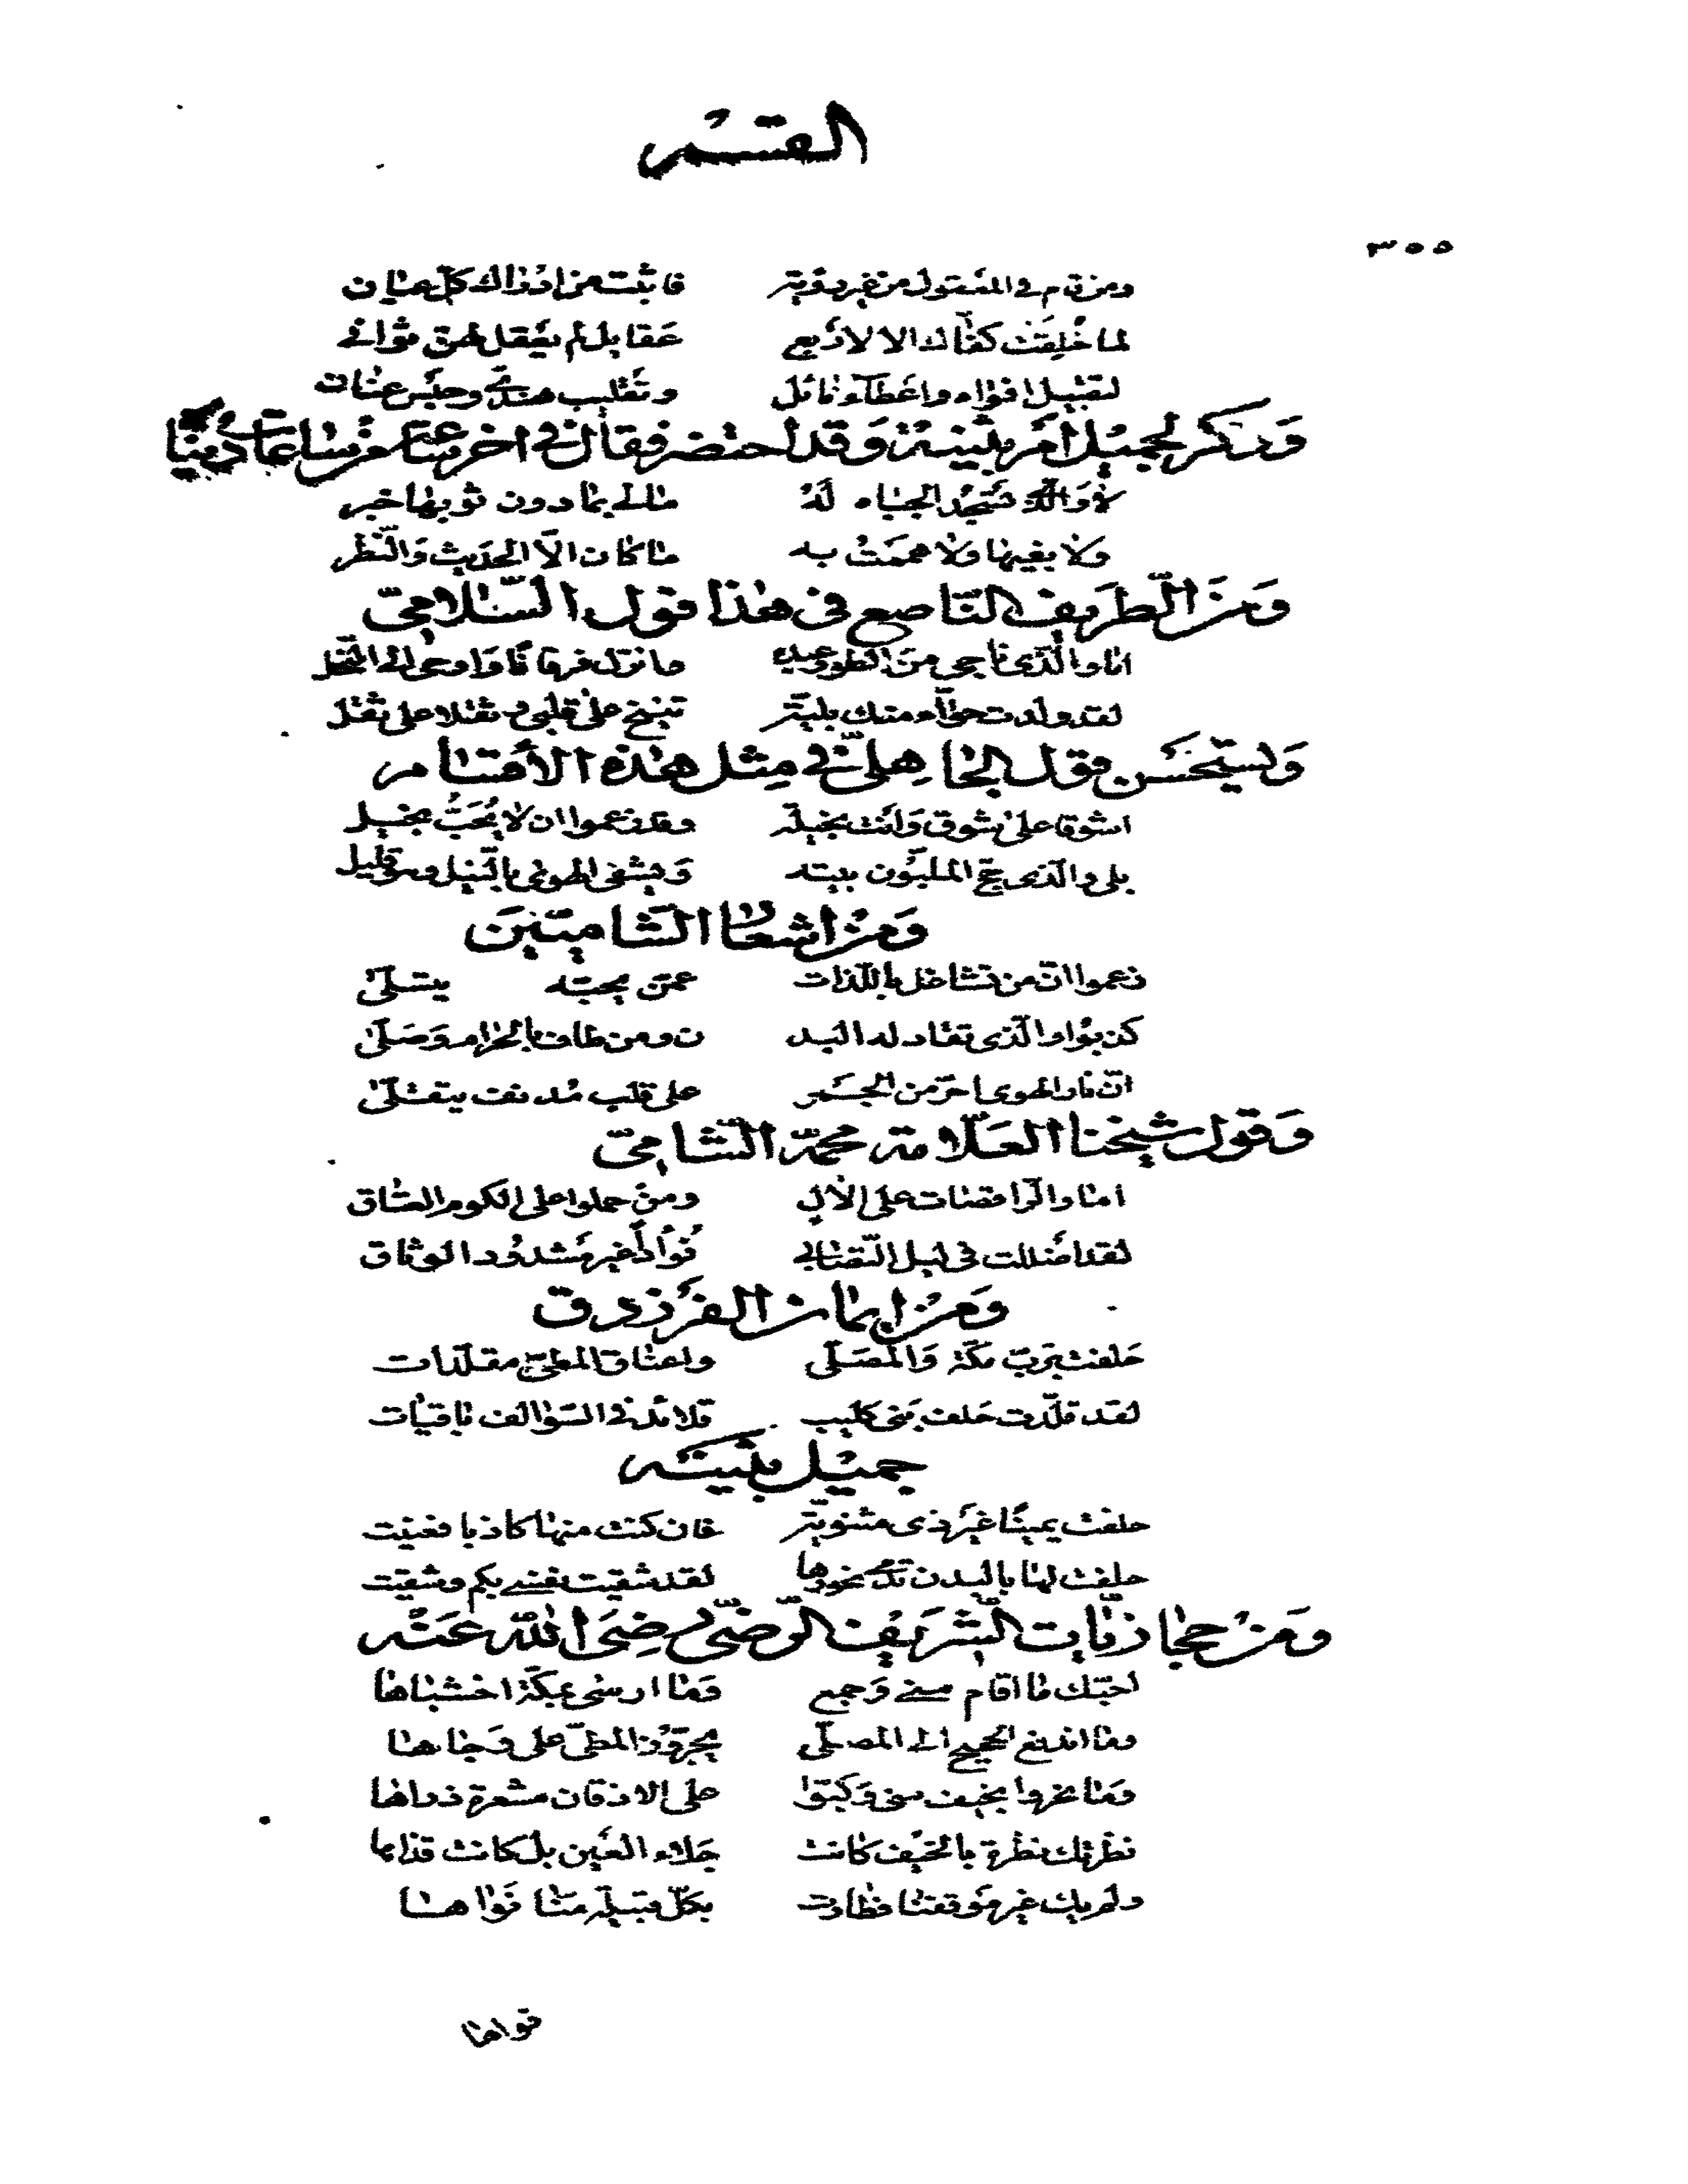 القسم
٣٥٥
ومن قام في المعقول من غير رؤية فاثبت من ادراك كل عيان
لما خُلِقَت كفّاك الا لاربع عقايل لم يعقل لهنّ ثواني
لتقبيل افواه واعطآء نائل وتقليب هنديّ وحبس عنان
وذكر لجميل امر بثينة وقد احتضر فقال في اخر ساعات من ساعات دنيا
لا وَالّذي تسجد الجباه لَهُ مالي بما دون ثوبها خبر
ولا بفيها ولا هممت به ما كان الّا الحديث وَالنّظر
وَمن الطريف الناصع في هذا قول السّلامّي
اما والّذي ناجى من الطور عبده وانزل فرقانا واوحى الى النحل
لقد ولدت حوّاء منك بليّة تنيخ على قلبي وثقلا على ثقل
وَيستحسن قول الجاهلّي في مثل هذه الأقسام
اشوقا على شوق وَانت بخيلة وقد زعموا ان لا يُحَبّ بخيل
بلى والّذي حجّ الملبّون بيته وَيشفى الهوى بالنّيل وهو قليل
وَمن اشعار الشاميّينَ
زعموا انّ من تشاغل باللذات عمّن يحبّه يتسلّى
كذبوا والّذي تقاد له البد ن ومن طاف بالحرام وَصَلّى
انّ نار الهوى احرّ من الجمر على قلب مدنف يتقلّى
وَقول شيخنا العَلّامة محمّد الشّامّي
اما والرّاقصات على الألال ومن حملوا على الكوم العتاق
لقد اضللت في ليل التّصابي فُؤَادًا غير مشدُود الوثاق
وَمن ايمان الفرزدق
حَلفت بربّ مكّة وَالمُصَلّى واعناق المطيّ مقلّدات
لقد قلّدت حَلف بَني كليب قلائد في السّوالف باقيات
جميل بثينة
حلفت يمينًا غير ذى مثنويّة فان كنت منها كاذبا فعميت
حلفت لها بالبدن تدمى نحورها لقد شقيت نفسي بكم وشقيت
وَمن حجازيّات الشّريف الرّضيّ رضِيَ الله عَنه
احبّك ما اقام منى وَجمع وَما ارسى بمكّة اخشباها
وما اندفع الحجيج الى المصلّى يجرّون المطيّ على وَجاها
وَما نحروا بخيف منى وَكبّوا على الاذقان مشعرة ذراها
نظرتك نظرة بالخيف كانت جلاء العين بل كانت قذاها
ولم يك غير مَوقفنا فطارت بكلّ قبيلة منّا نَوَاها
نواها